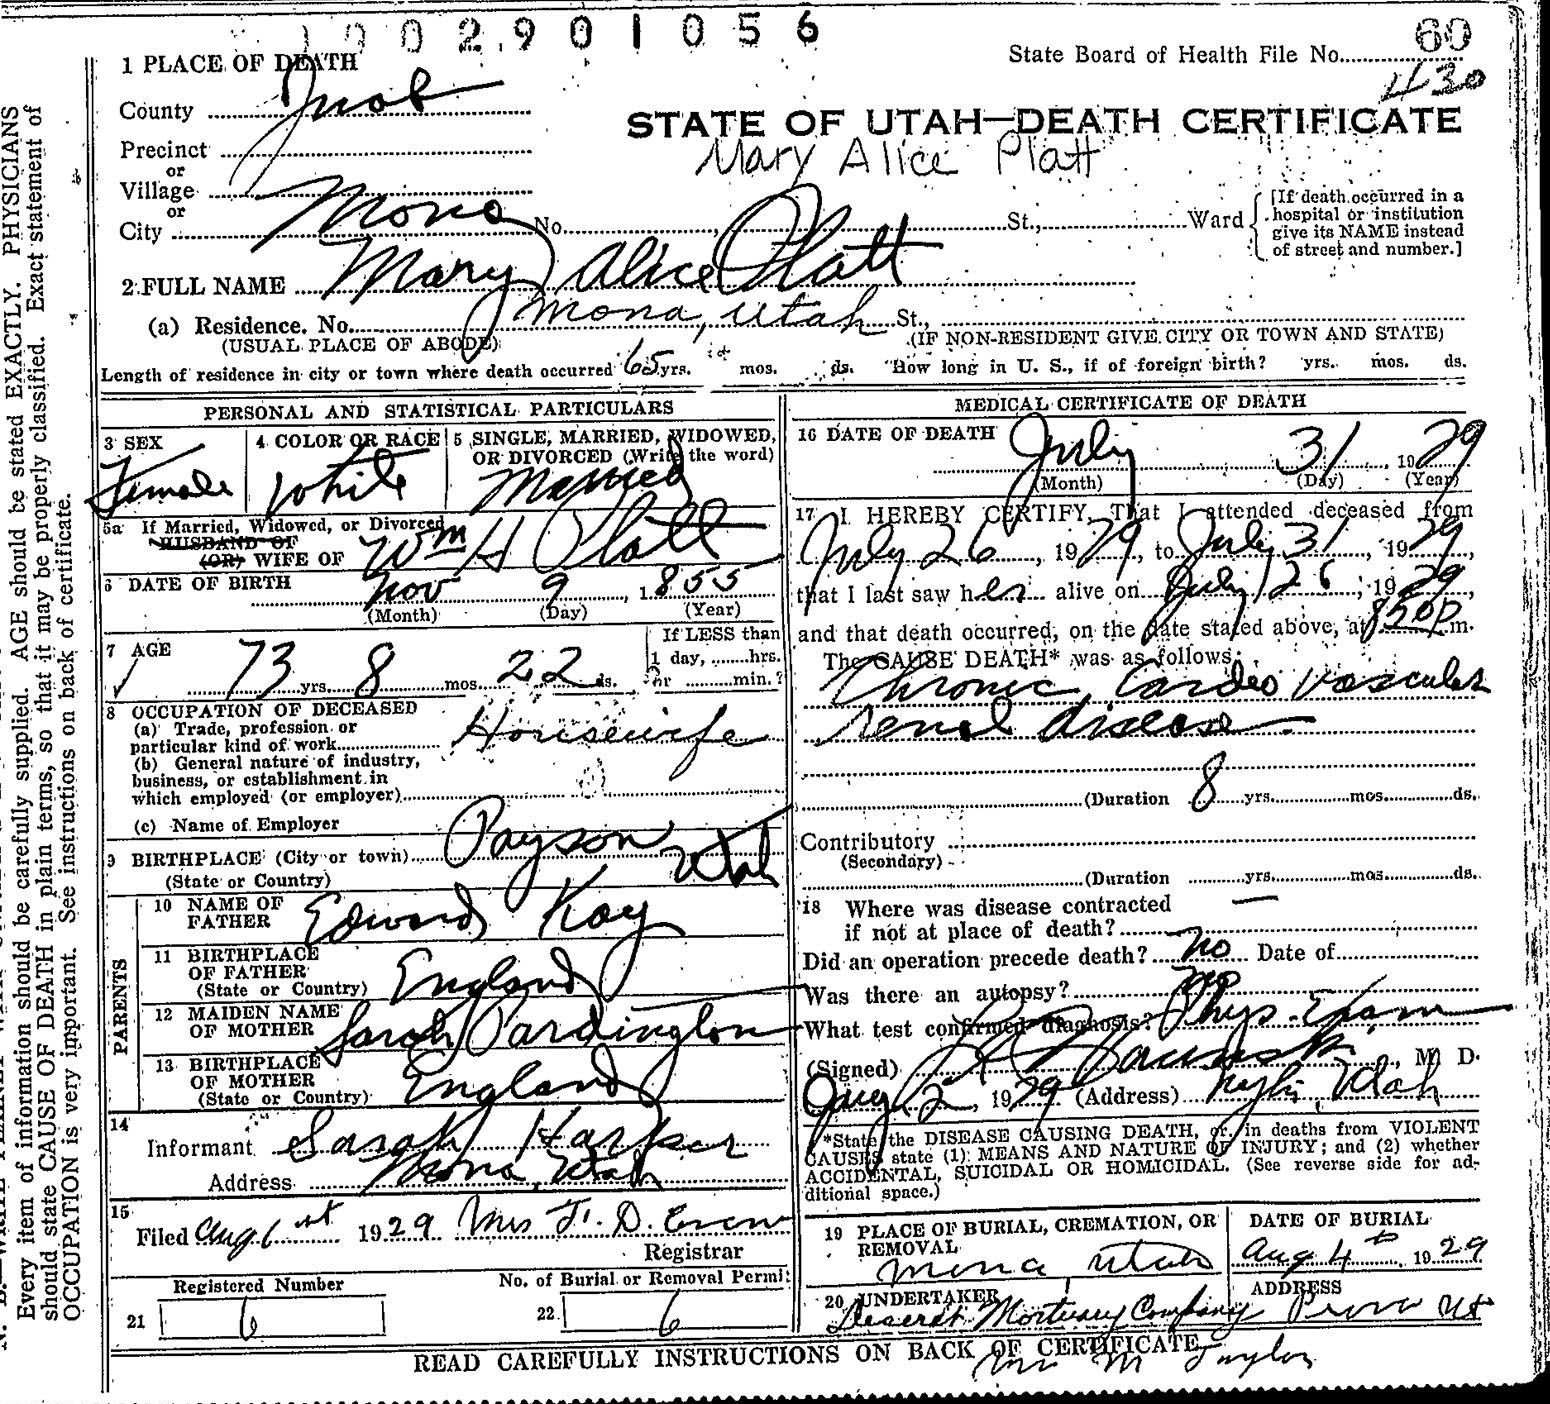 1002901056
State Board of Health File No. 60
430
1 PLACE OF DEATH
County Juab
STATE OF UTAH—DEATH CERTIFICATE
Precinct
Mary Alice Platt
or
Village
or
City Mona No. St., Ward
[If death occurred in a
hospital or institution
give its NAME instead
of street and number.]
2 FULL NAME Mary Alice Platt
(a) Residence. No. Mona, Utah St.,
(USUAL PLACE OF ABODE) (IF NON-RESIDENT GIVE CITY OR TOWN AND STATE)
Length of residence in city or town where death occurred 65 yrs. mos. ds. How long in U. S., if of foreign birth? yrs. mos. ds.
PERSONAL AND STATISTICAL PARTICULARS
3 SEX
Female
4 COLOR OR RACE
White
5 SINGLE, MARRIED, WIDOWED,
OR DIVORCED (Write the word)
Married
5a If Married, Widowed, or Divorced
HUSBAND OF
(OR) WIFE OF Wm H Platt
6 DATE OF BIRTH Nov 9, 1855
(Month) (Day) (Year)
7 AGE
73 yrs. 8 mos. 22 ds.
If LESS than
1 day, hrs.
or min.?
8 OCCUPATION OF DECEASED
(a) Trade, profession or
particular kind of work Housewife
(b) General nature of industry,
business, or establishment in
which employed (or employer)
(c) Name of Employer
9 BIRTHPLACE (City or town) Payson
(State or Country) Utah
PARENTS
10 NAME OF
FATHER Edward Kay
11 BIRTHPLACE
OF FATHER
(State or Country) England
12 MAIDEN NAME
OF MOTHER Sarah Pardington
13 BIRTHPLACE
OF MOTHER
(State or Country) England
14
Informant Sarah Harker
Address Mona, Utah
15
Filed Aug 6 1929 Mrs F. D.
Registrar
Registered Number
21 6
No. of Burial or Removal Permit
22 6
MEDICAL CERTIFICATE OF DEATH
16 DATE OF DEATH July 31, 1929
(Month) (Day) (Year)
17 I HEREBY CERTIFY, That I attended deceased from
July 26, 1929, to July 31, 1929,
that I last saw her alive on July 26, 1929,
and that death occurred, on the date stated above, at 850p m.
The CAUSE DEATH* was as follows:
Chronic Cardio Vascular
renal disease
(Duration 8 yrs. mos. ds.
Contributory
(Secondary)
(Duration yrs. mos. ds.
18 Where was disease contracted
if not at place of death? —
Did an operation precede death? no Date of
Was there an autopsy? no
What test confirmed diagnosis? Phys. Exam
(Signed) , M D.
Aug 2, 1929 (Address) Utah
*State the DISEASE CAUSING DEATH, or, in deaths from VIOLENT
CAUSES state (1) MEANS AND NATURE OF INJURY; and (2) whether
ACCIDENTAL, SUICIDAL OR HOMICIDAL. (See reverse side for ad-
ditional space.)
19 PLACE OF BURIAL, CREMATION, OR
REMOVAL
Mona, Utah
DATE OF BURIAL
Aug 4th, 1929
20 UNDERTAKER
Deseret Mortuary Company
ADDRESS
Provo Ut
READ CAREFULLY INSTRUCTIONS ON BACK OF CERTIFICATE
M Taylor
Every item of information should be carefully supplied. AGE should be stated EXACTLY. PHYSICIANS
should state CAUSE OF DEATH in plain terms, so that it may be properly classified. Exact statement of
OCCUPATION is very important. See instructions on back of certificate.